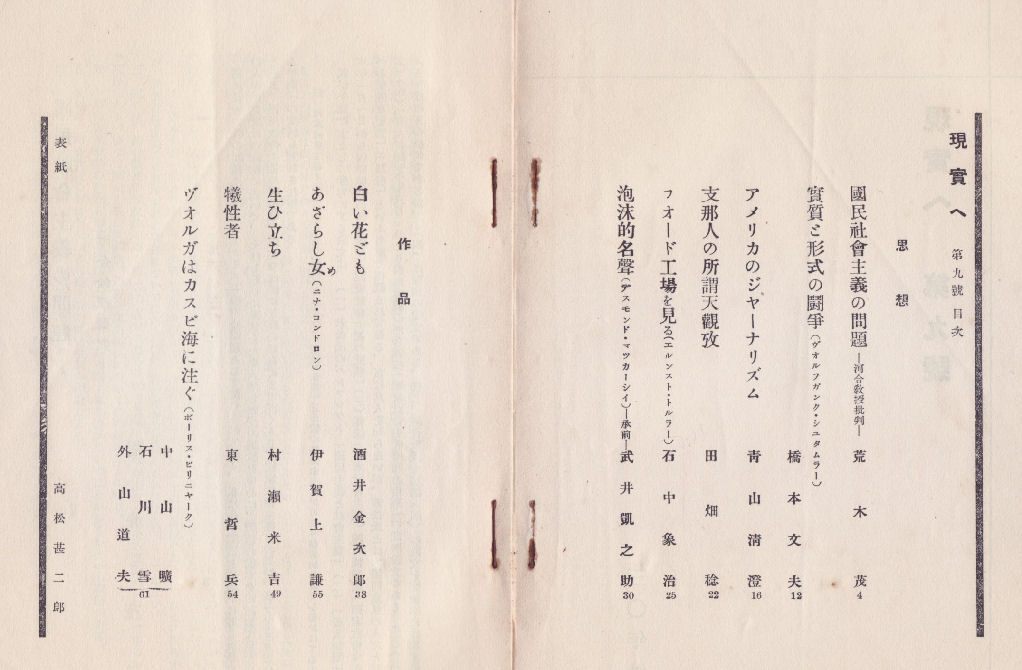 現實へ 第九號目次
思想
國民社會主義の問題 ―河合教授批判― 荒木茂 4
實質と形式の鬪爭(ヴオルフガンク・シユタムラー) 橋本文夫 12
アメリカのジャーナリズム 青山清澄 16
支那人の所謂天觀攷 田畑稔 22
フオード工場を見る(エルンスト・トルラー) 石中象治 25
泡沫的名聲(デスモンド・マツカーシイ)―承前― 武井凱之助 30
作品
白い花ども 酒井金次郎 38
あざらし女(ニナ・コンドロン) 伊賀上謙 55
め
生ひ立ち 村瀬米吉 49
犠性者 東哲兵 54
ヴオルガはカスピ海に注ぐ(ボーリス・ピリニヤーク)
中山曠
石川雪
外山道夫
61
表紙 高松甚二郎